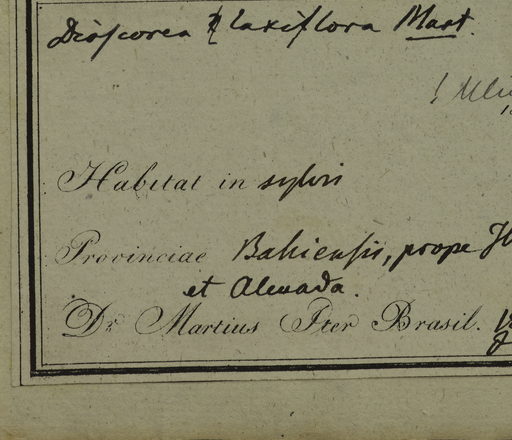 Dioscorea laxiflora Mart.
Habitat in sylvis
Provinciae Bahiensis, prope
et Almada.
Dr. Martius Iter Brasil.